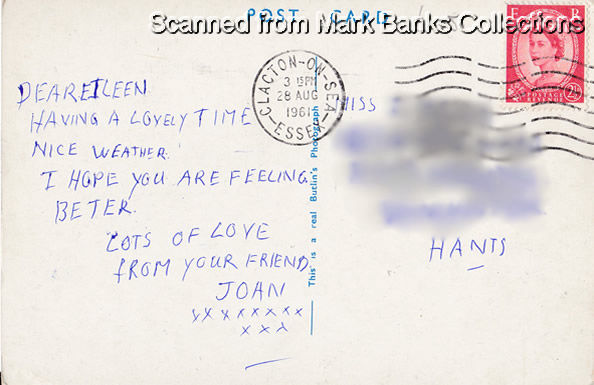 Scanned from Mark Banks Collections
POST CARD
E R
POSTAGE
REVENUE
2½
CLACTON-ON-SEA
3 15PM
28 AUG
1961
ESSEX
DEAR EILEEN.
HAVING A LOVELY TIME
NICE WEATHER.
I HOPE YOU ARE FEELING.
BETER.
LOTS OF LOVE
FROM YOUR FRIEND.
JOAN
xxxxxxxx
xxx
This is a real Butlin's Photograph
MISS
HANTS